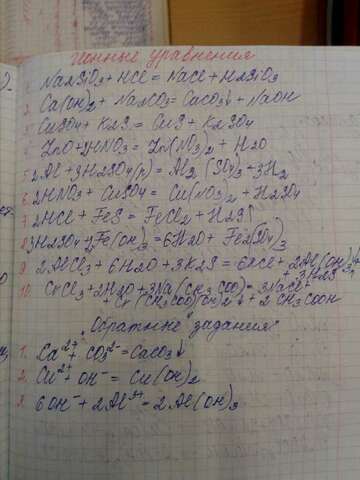 Ионные уравнения
1. Na2SiO3 + HCl = NaCl + H2SiO3
2. Ca(OH)2 + Na2CO3 = CaCO3↓ + NaOH
3. CuSO4 + K2S = CuS + K2SO4
4. ZnO + 2HNO3 = Zn(NO3)2 + H2O
5. 2Al + 3H2SO4(р) = Al2(SO4)3 + 3H2
6. 2HNO3 + CuSO4 = Cu(NO3)2 + H2SO4
7. 2HCl + FeS = FeCl2 + H2S↑
8. 3H2SO4 + 2Fe(OH)3 = 6H2O + Fe2(SO4)3
9. 2AlCl3 + 6H2O + 3K2S = 6KCl + 2Al(OH)3↓ + 3H2S↑
10. CrCl3 + 2H2O + 3Na(CH3COO) = 3NaCl + Cr(CH3COO)(OH)2↓ + 2CH3COOH
"Обратные" задания
1. Ca2+ + CO3 2- = CaCO3↓
2. Cu2+ + OH- = Cu(OH)2
3. 6OH- + 2Al3+ = 2Al(OH)3